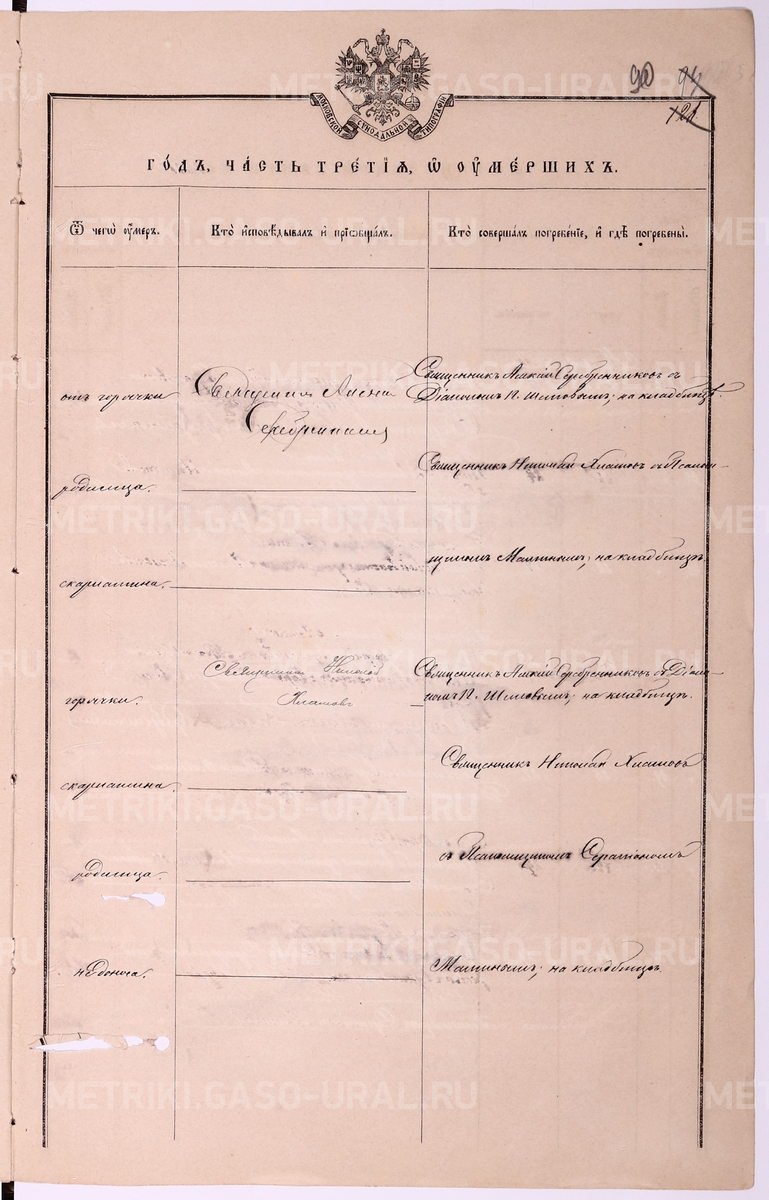 90 94
121
МОСКОВСКОЙ СѴНОДАЛЬНОЙ ТИПОГРАФІИ
ГО́ДЪ, ЧА́СТЬ ТРЕ́ТІѦ, Ѡ҆ ОУ҆МЕ́РШИХЪ.
Ѿ чегѡ̀ оу҆́меръ.
Кто̀ и҆сповѣ́дывалъ и҆ прїѡбща́лъ.
Кто̀ соверша́лъ погребе́нїе, и҆ гдѣ̀ погребены̀.
отъ горячки
Священник
Священникъ Алексій Серебренниковъ съ
Діакономъ П. Шиловымъ; на кладбищѣ.
родимца.
Священникъ Николай Хламовъ съ Псалом-
скарлатина.
щикомъ Маминымъ; на кладбищѣ
горячки.
Священникъ Николай
Хламовъ
Священникъ Алексій Серебренниковъ съ Діако-
номъ П. Шиловымъ; на кладбищѣ.
скарлатина.
Священникъ Николай Хламовъ
родимца.
съ Псаломщикомъ Серапіономъ
недоноса.
Маминымъ; на кладбищѣ
METRIKI.GASO-URAL.RU